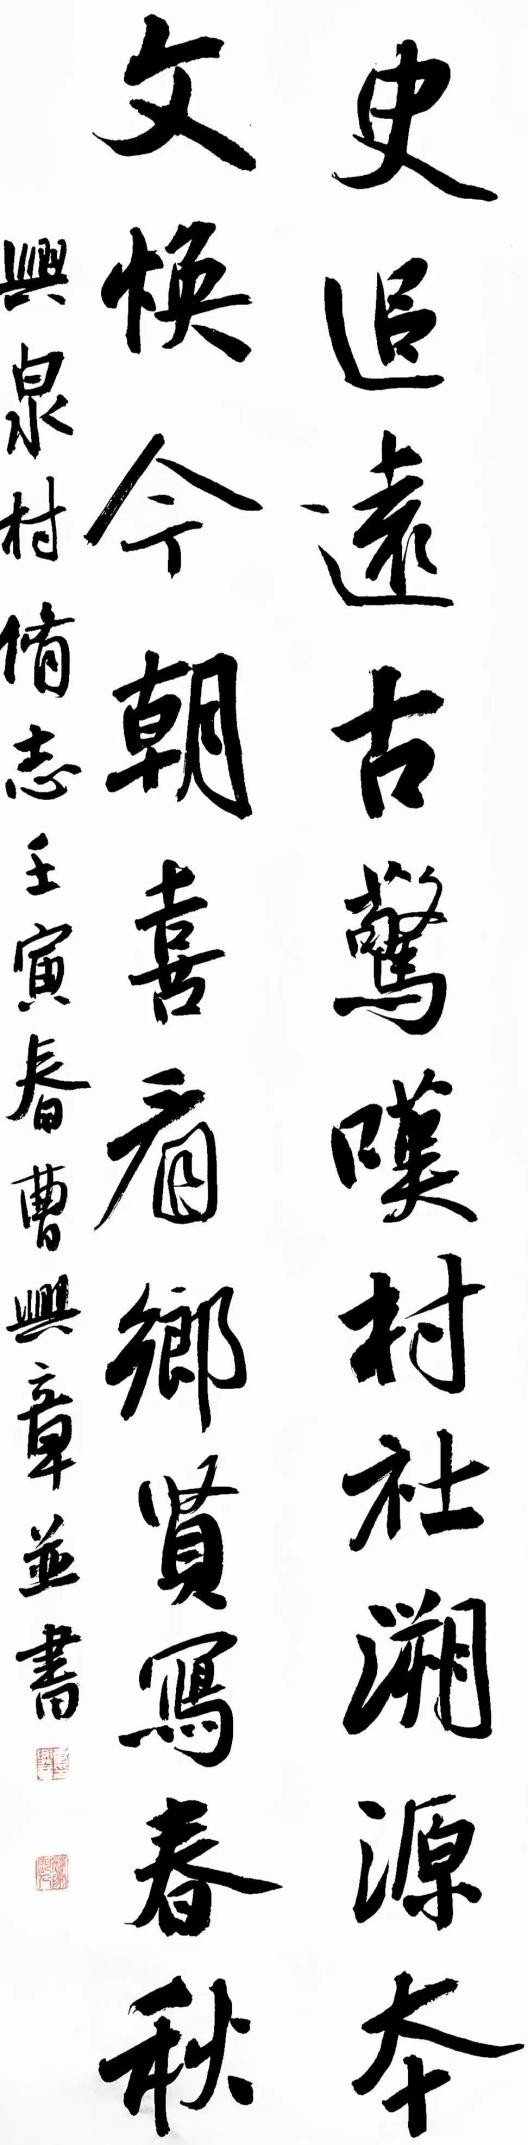 史追遠古驚嘆村社溯源本
文煥今朝喜看鄉賢寫春秋
興泉村脩志壬寅春曹興章並書